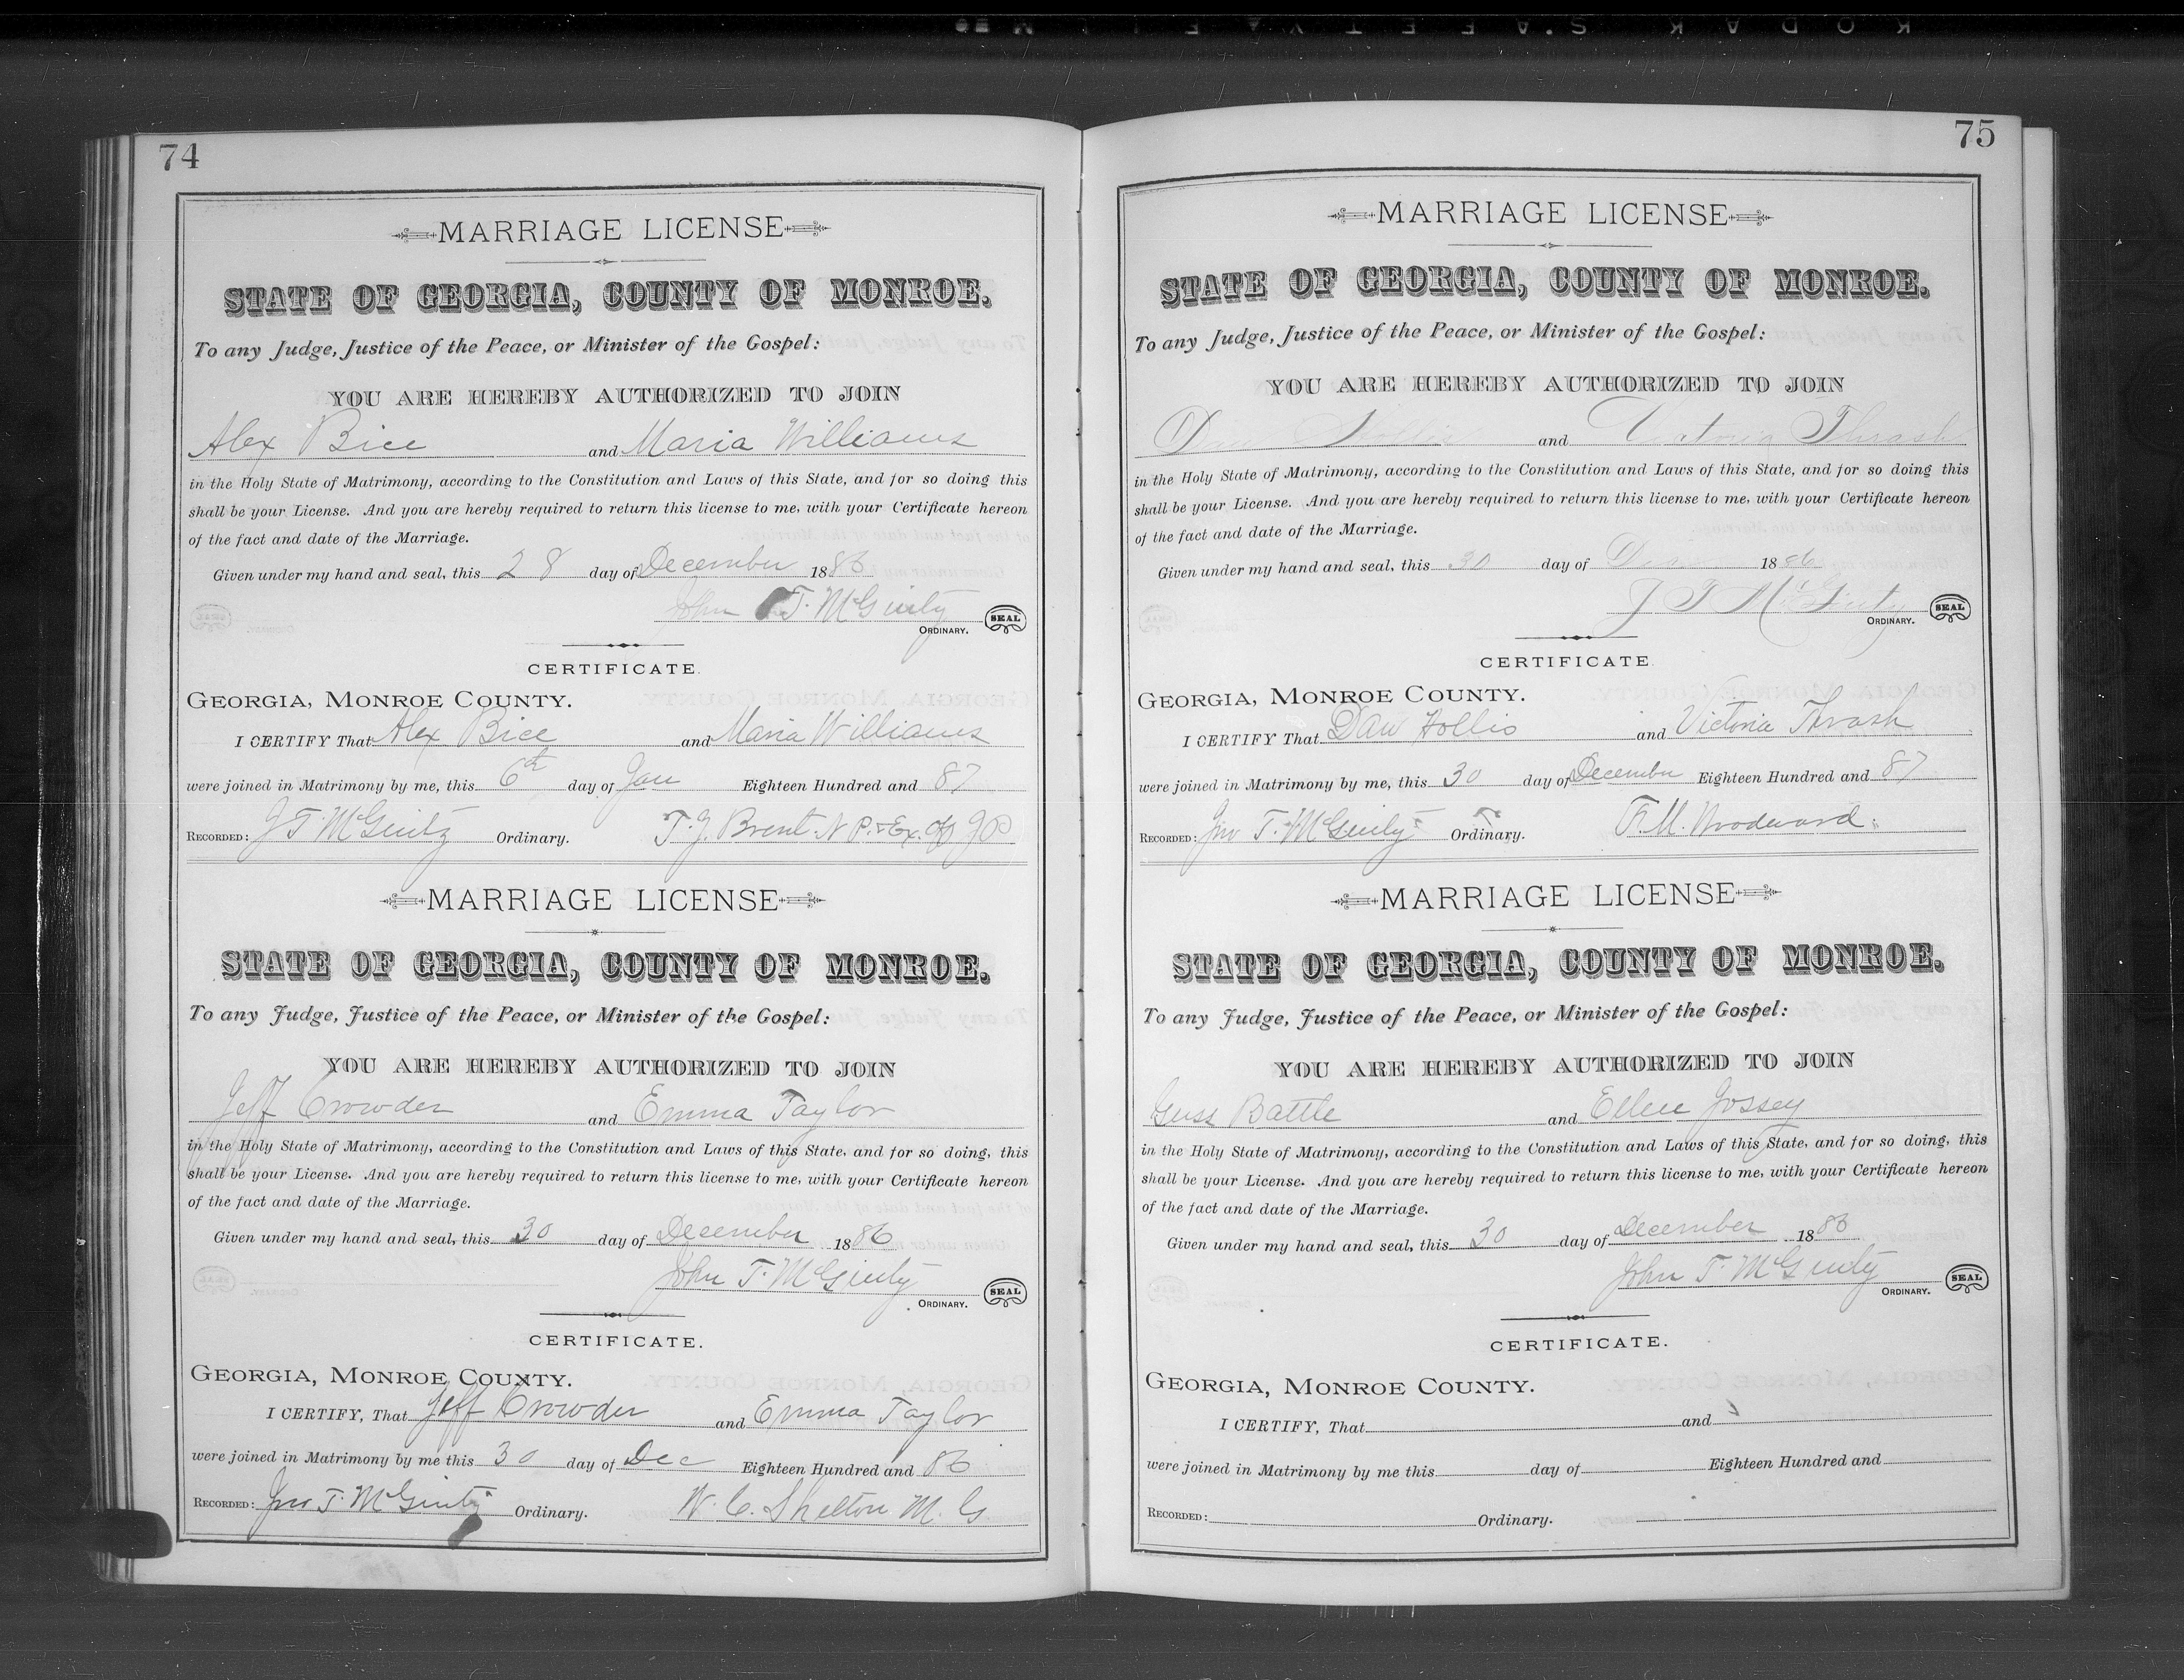 KODAK SAFETY FILM
74
MARRIAGE LICENSE
STATE OF GEORGIA, COUNTY OF MONROE.
To any Judge, Justice of the Peace, or Minister of the Gospel:
YOU ARE HEREBY AUTHORIZED TO JOIN
Alex Bice and Maria Williams
in the Holy State of Matrimony, according to the Constitution and Laws of this State, and for so doing this
shall be your License. And you are hereby required to return this license to me, with your Certificate hereon
of the fact and date of the Marriage.
Given under my hand and seal, this 28 day of December 1886
John T. McGinty
ORDINARY. SEAL
CERTIFICATE.
GEORGIA, MONROE COUNTY.
I CERTIFY That Alex Bice and Maria Williams
were joined in Matrimony by me, this 6th day of Jan Eighteen Hundred and 87
RECORDED: J T McGinty Ordinary. T. J. Brent N P. & Ex. off J P
MARRIAGE LICENSE
STATE OF GEORGIA, COUNTY OF MONROE.
To any Judge, Justice of the Peace, or Minister of the Gospel:
YOU ARE HEREBY AUTHORIZED TO JOIN
Jeff Crowder and Emma Taylor
in the Holy State of Matrimony, according to the Constitution and Laws of this State, and for so doing, this
shall be your License. And you are hereby required to return this license to me, with your Certificate hereon
of the fact and date of the Marriage.
Given under my hand and seal, this 30 day of December 1886
John T. McGinty
ORDINARY. SEAL
CERTIFICATE.
GEORGIA, MONROE COUNTY.
I CERTIFY, That Jeff Crowder and Emma Taylor
were joined in Matrimony by me this 30 day of Dec Eighteen Hundred and 86
RECORDED: Jno T. McGinty Ordinary. W. C. Shelton M. G
75
MARRIAGE LICENSE
STATE OF GEORGIA, COUNTY OF MONROE.
To any Judge, Justice of the Peace, or Minister of the Gospel:
YOU ARE HEREBY AUTHORIZED TO JOIN
Daw Hollis and Victoria Thrash
in the Holy State of Matrimony, according to the Constitution and Laws of this State, and for so doing this
shall be your License. And you are hereby required to return this license to me, with your Certificate hereon
of the fact and date of the Marriage.
Given under my hand and seal, this 30 day of 1886
J T McGinty
ORDINARY. SEAL
CERTIFICATE.
GEORGIA, MONROE COUNTY.
I CERTIFY That Daw Hollis and Victoria Thrash
were joined in Matrimony by me, this 30 day of December Eighteen Hundred and 87
RECORDED: Jno T. McGinty Ordinary. F. M. Woodward
MARRIAGE LICENSE
STATE OF GEORGIA, COUNTY OF MONROE.
To any Judge, Justice of the Peace, or Minister of the Gospel:
YOU ARE HEREBY AUTHORIZED TO JOIN
Guss Battle and Ellen Jossey
in the Holy State of Matrimony, according to the Constitution and Laws of this State, and for so doing, this
shall be your License. And you are hereby required to return this license to me, with your Certificate hereon
of the fact and date of the Marriage.
Given under my hand and seal, this 30 day of December 1886
John T. McGinty
ORDINARY. SEAL
CERTIFICATE.
GEORGIA, MONROE COUNTY.
I CERTIFY, That and
were joined in Matrimony by me this day of Eighteen Hundred and
RECORDED: Ordinary.